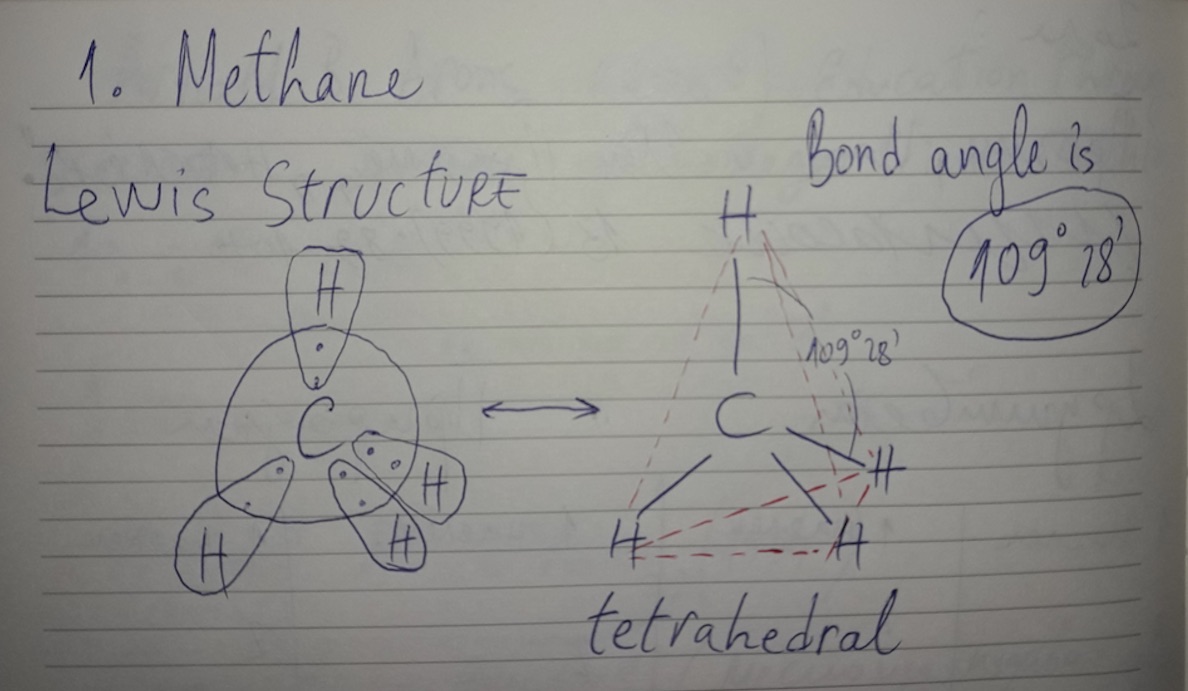 1. Methane
Lewis Structure
Bond angle is
109° 28'
H
C
H
H
H
H
109° 28'
C
H
H
H
tetrahedral